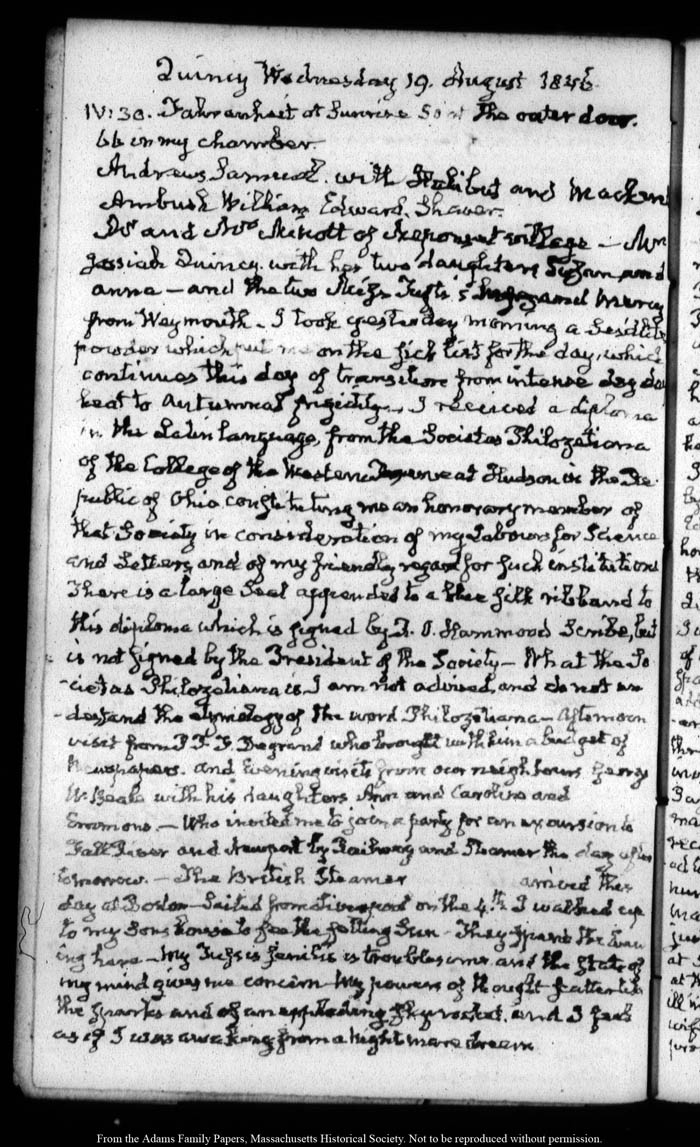 Quincy Wednesday 19. August 1846.
IV:30. Fahrenheit at Sunrise 80 at the outer door.
66 in my chamber.
Andrews Samuel. with Halibut and Mackerel
Ambush William Edward. Shaver.
Dr and Mrs Minott of Neponset village — Mrs
Josiah Quincy. with her two daughters Susan and
anna — and the two Miss Tufts's and Mercy
from Weymouth. I took yesterday morning a Seidlitz
powder which put me on the sick list for the day, which
continues this day of transition from intense dog day
heat to Autumnal frigidity. I received a diploma
in the Latin language, from the Societas Philozetiana
of the College of the Western Reserve at Hudson in the Re-
public of Ohio constituting me an honorary member of
that Society in consideration of my Labours for Science
and Letters, and of my friendly regard for such institutions
There is a large Seal appended to a blue silk ribband to
this diploma which is signed by J. O. Hammond Scribe, but
is not signed by the President of the Society — What the So-
-cietas Philozetiana is, I am not advised, and do not un-
-derstand the etymology of the word Philozetiana — Afternoon
visit from P. P. F. Degrand who brought with him a budget of
Newspapers. and Evening visits from our neighbours George
W. Beale with his daughters Ann and Caroline and
Emmons. — Who invited me to join a party for an excursion to
Fall River and Newport by Railway and Steamer the day after
tomorrow. — The British Steamer arrived this
day at Boston — Sailed from Liverpool on the 4th I walked up
to my Sons house to see the setting Sun — They spent the Even
ing here — My Tussis senilis is troublesome and the state of
my mind gives me concern My powers of thought scatter like
the sparks and of an exploding sky rocket, and I feel
as if I was awaking from a night mare dream
From the Adams Family Papers, Massachusetts Historical Society. Not to be reproduced without permission.